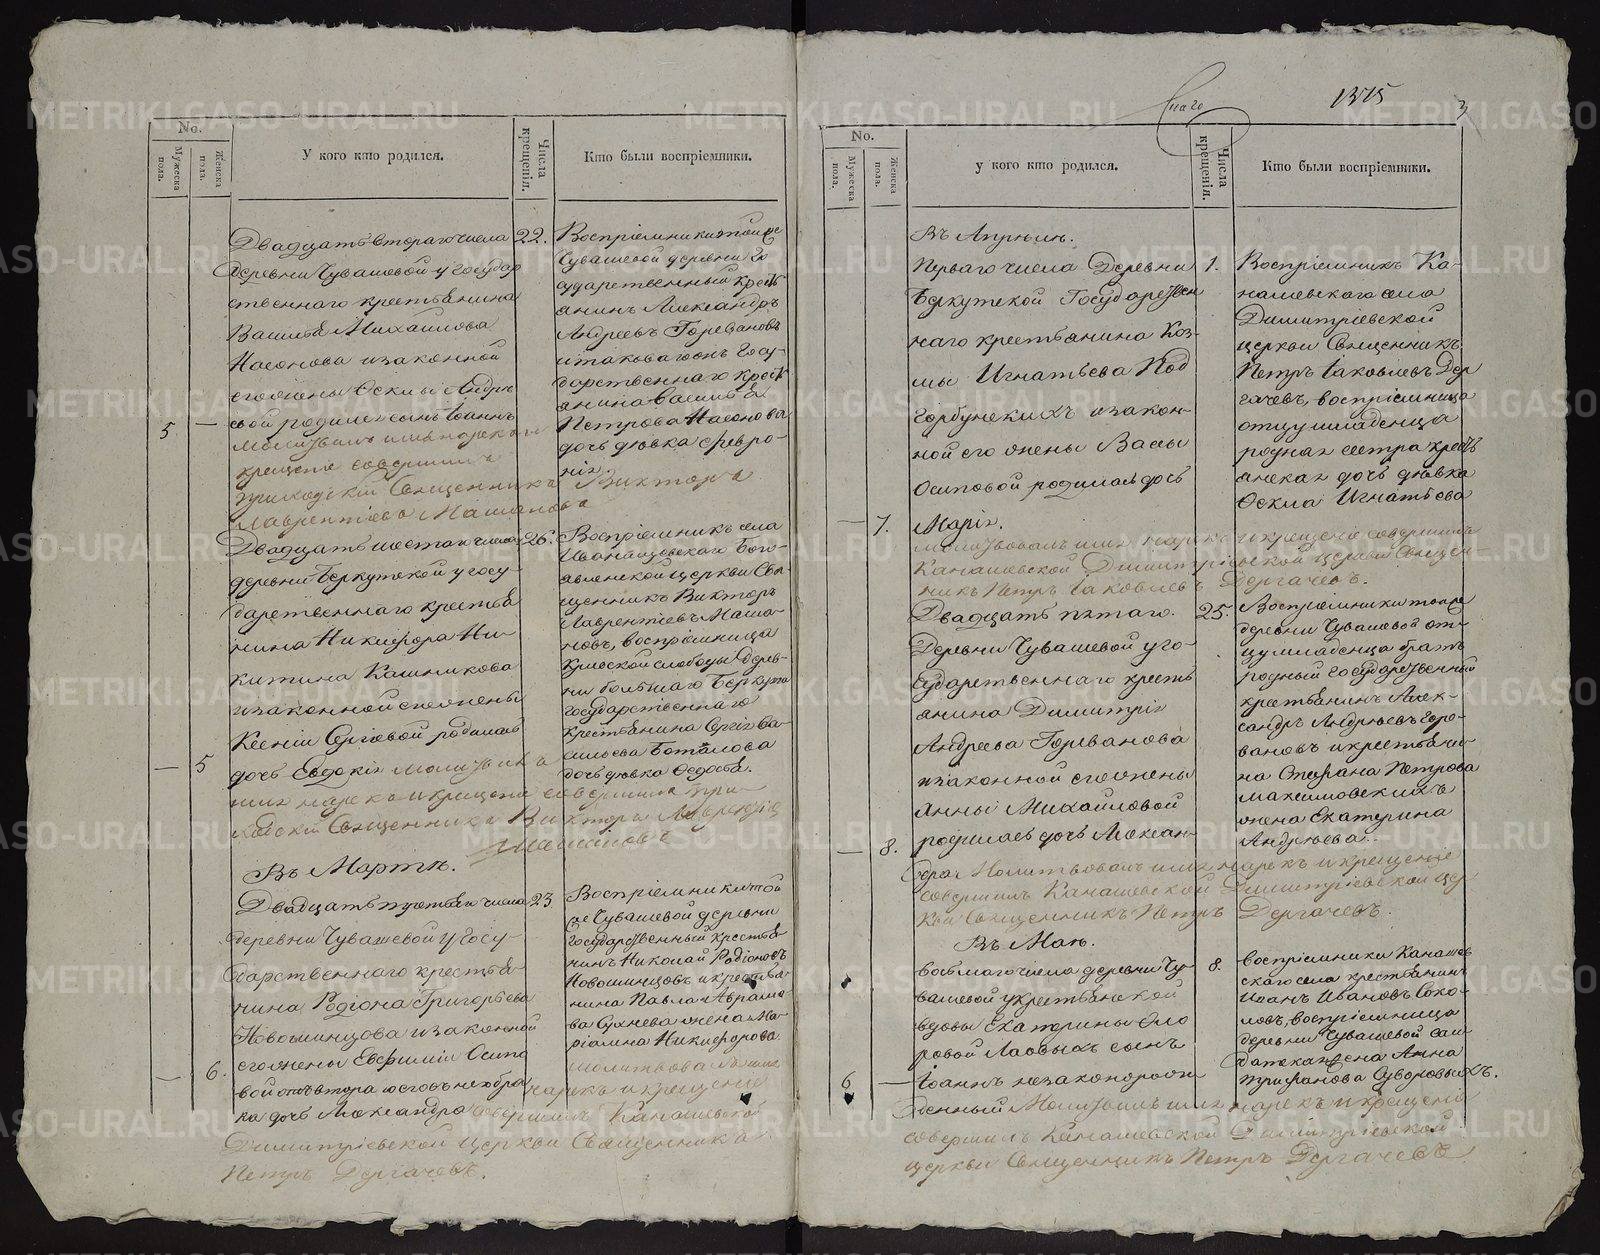 No.
Мужеска пола.
Женска пола.
У кого кто родился.
Числа крещенія.
Кто были воспріемники.
Двадцать втораго числа
деревни Чувашевой у государ
ственнаго крестьянина
Василья Михайлова
Насонова и законной
его жены Ѳеклы Андре
евой родился сынъ Іоаннъ
5
крещеніе совершилъ
приходскій Священникъ Викторъ
Лаврентіевъ Машановъ
22.
Воспріемники той же
Чувашевой деревни го
сударственный кресть
янинъ Александръ
Андреевъ Горевановъ
и таковагожъ Госу-
дарственнаго кресть
янина Василья
Петрова Насонова
дочь дѣвка Февро-
нія
Двадцать шестаго числа
деревни Беркутской у госу-
дарственнаго крестья
нина Никифора Ни-
китина Кашникова
и законной его жены
Ксеніи Сергіевой родилась
5
дочь Евдокія молитвилъ
имя нарекъ и крещеніе совершилъ при-
ходскій Священникъ Викторъ Лаврентіевъ
Машановъ
26.
Воспріемникъ села
Иванищевскаго Бого-
явленской церкви Свя-
щенникъ Викторъ
Лаврентіевъ Маша-
новъ, воспріемница
Кривской слободы дерев-
ни большаго Беркута
государственнаго
крестьянина Сергія Ва-
сильева Боталова
дочь дѣвка Ѳедосья.
Въ Мартѣ.
Двадцать третьяго числа
деревни Чувашевой у госу-
дарственнаго крестья-
нина Родіона Григорьева
Новошинцова и законной
его жены Евфиміи Осипо
6.
вой отъ втораго его брака
дочь Александра совершилъ Канашевской
Димитріевской церкви Священникъ
Петръ Дергачевъ.
23
Воспріемники той
же Чувашевой деревни
государственный крестья
нинъ Николай Родіоновъ
Новошинцовъ и крестья-
нина Павла Аврамо-
ва Сухнева жена Ма-
ріамна Никифорова
молитвовалъ имя
нарекъ и крещеніе
1375
3
No.
Мужеска пола.
Женска пола.
у кого кто родился.
Числа крещенія.
Кто были воспріемники.
Въ Апрѣлѣ.
Перваго числа Деревни
Беркутской Государствен
наго крестьянина Коз-
мы Игнатьева Под
горбунскихъ и закон-
ной его жены Вассы
Осиповой родилась дочь
7.
Марія.
молитвовалъ имя нарекъ и крещеніе совершилъ
Канашевской Димитріевской церкви Священ-
никъ Петръ Іаковлевъ Дергачевъ.
1.
Воспріемникъ Ка-
нашевскаго села
Димитріевской
церкви Священникъ
Петръ Іаковлевъ Дер
гачевъ, воспріемница
отцу младенца
родная сестра кресть
янская дочь дѣвка
Ѳекла Игнатьева
Двадцать пятаго.
Деревни Чувашевой у го-
сударственнаго кресть
янина Димитрія
Андреева Гореванова
и законной его жены
Анны Михайловой
8.
родилась дочь Алексан-
дра. Молитвовалъ имя нарекъ и крещеніе
совершилъ Канашевской Димитріевской цер
кви Священникъ Петръ Дергачевъ.
25.
Воспріемники тояже
деревни Чувашевой от-
цу младенца братъ
родный государственный
крестьянинъ Алек-
сандръ Андреевъ Горе-
вановъ и крестьяни-
на Стефана Петрова
Максимовскихъ
жена Екатерина
Андреева.
Въ Маѣ.
восьмаго числа деревни Чу-
вашевой у крестьянской
вдовы Екатерины Фло
ровой Лаовыхъ сынъ
6
Іоаннъ незаконорож-
денный Молитвилъ имя нарекъ и крещеніе
совершилъ Канашевской Димитріевской
церкви Священникъ Петръ Дергачевъ
8.
воспріемники Канашев
скаго села крестьянинъ
Іоанъ Ивановъ Соко-
ловъ, воспріемница
деревни Чувашевой сол-
датская жена Анна
Трифанова Суворовыхъ.